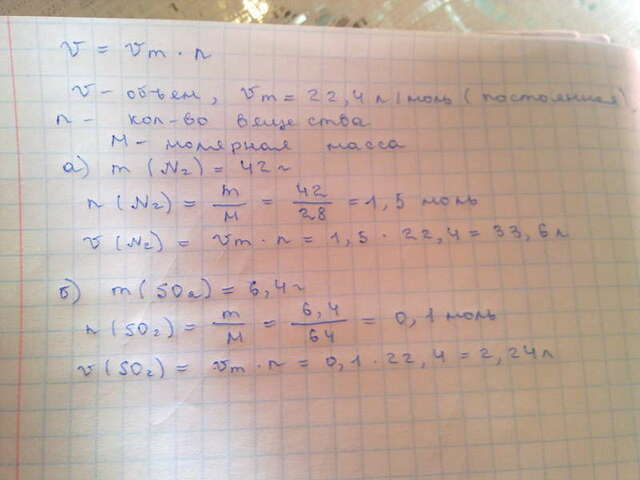 V = Vm · n
V - объем, Vm = 22,4 л/моль (постоянная)
n - кол-во вещества
M - молярная масса
а) m (N2) = 42 г
n (N2) = m/M = 42/28 = 1,5 моль
V (N2) = Vm · n = 1,5 · 22,4 = 33,6 л
б) m (SO2) = 6,4 г
n (SO2) = m/M = 6,4/64 = 0,1 моль
V (SO2) = Vm · n = 0,1 · 22,4 = 2,24 л